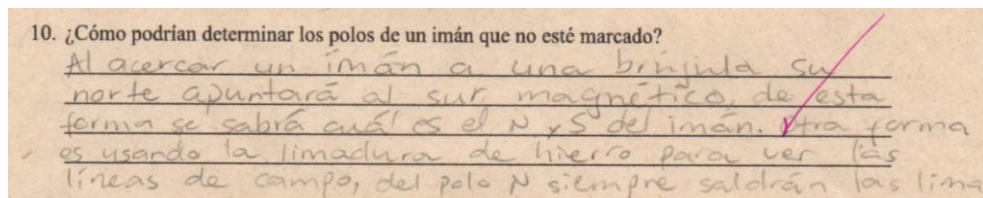 10. ¿Cómo podrían determinar los polos de un imán que no esté marcado?
Al acercar un imán a una brújula su
norte apuntará al sur magnético, de esta
forma se sabrá cuál es el N y S del imán. Otra forma
es usando la limadura de hierro para ver las
líneas de campo, del polo N siempre saldrán las lima